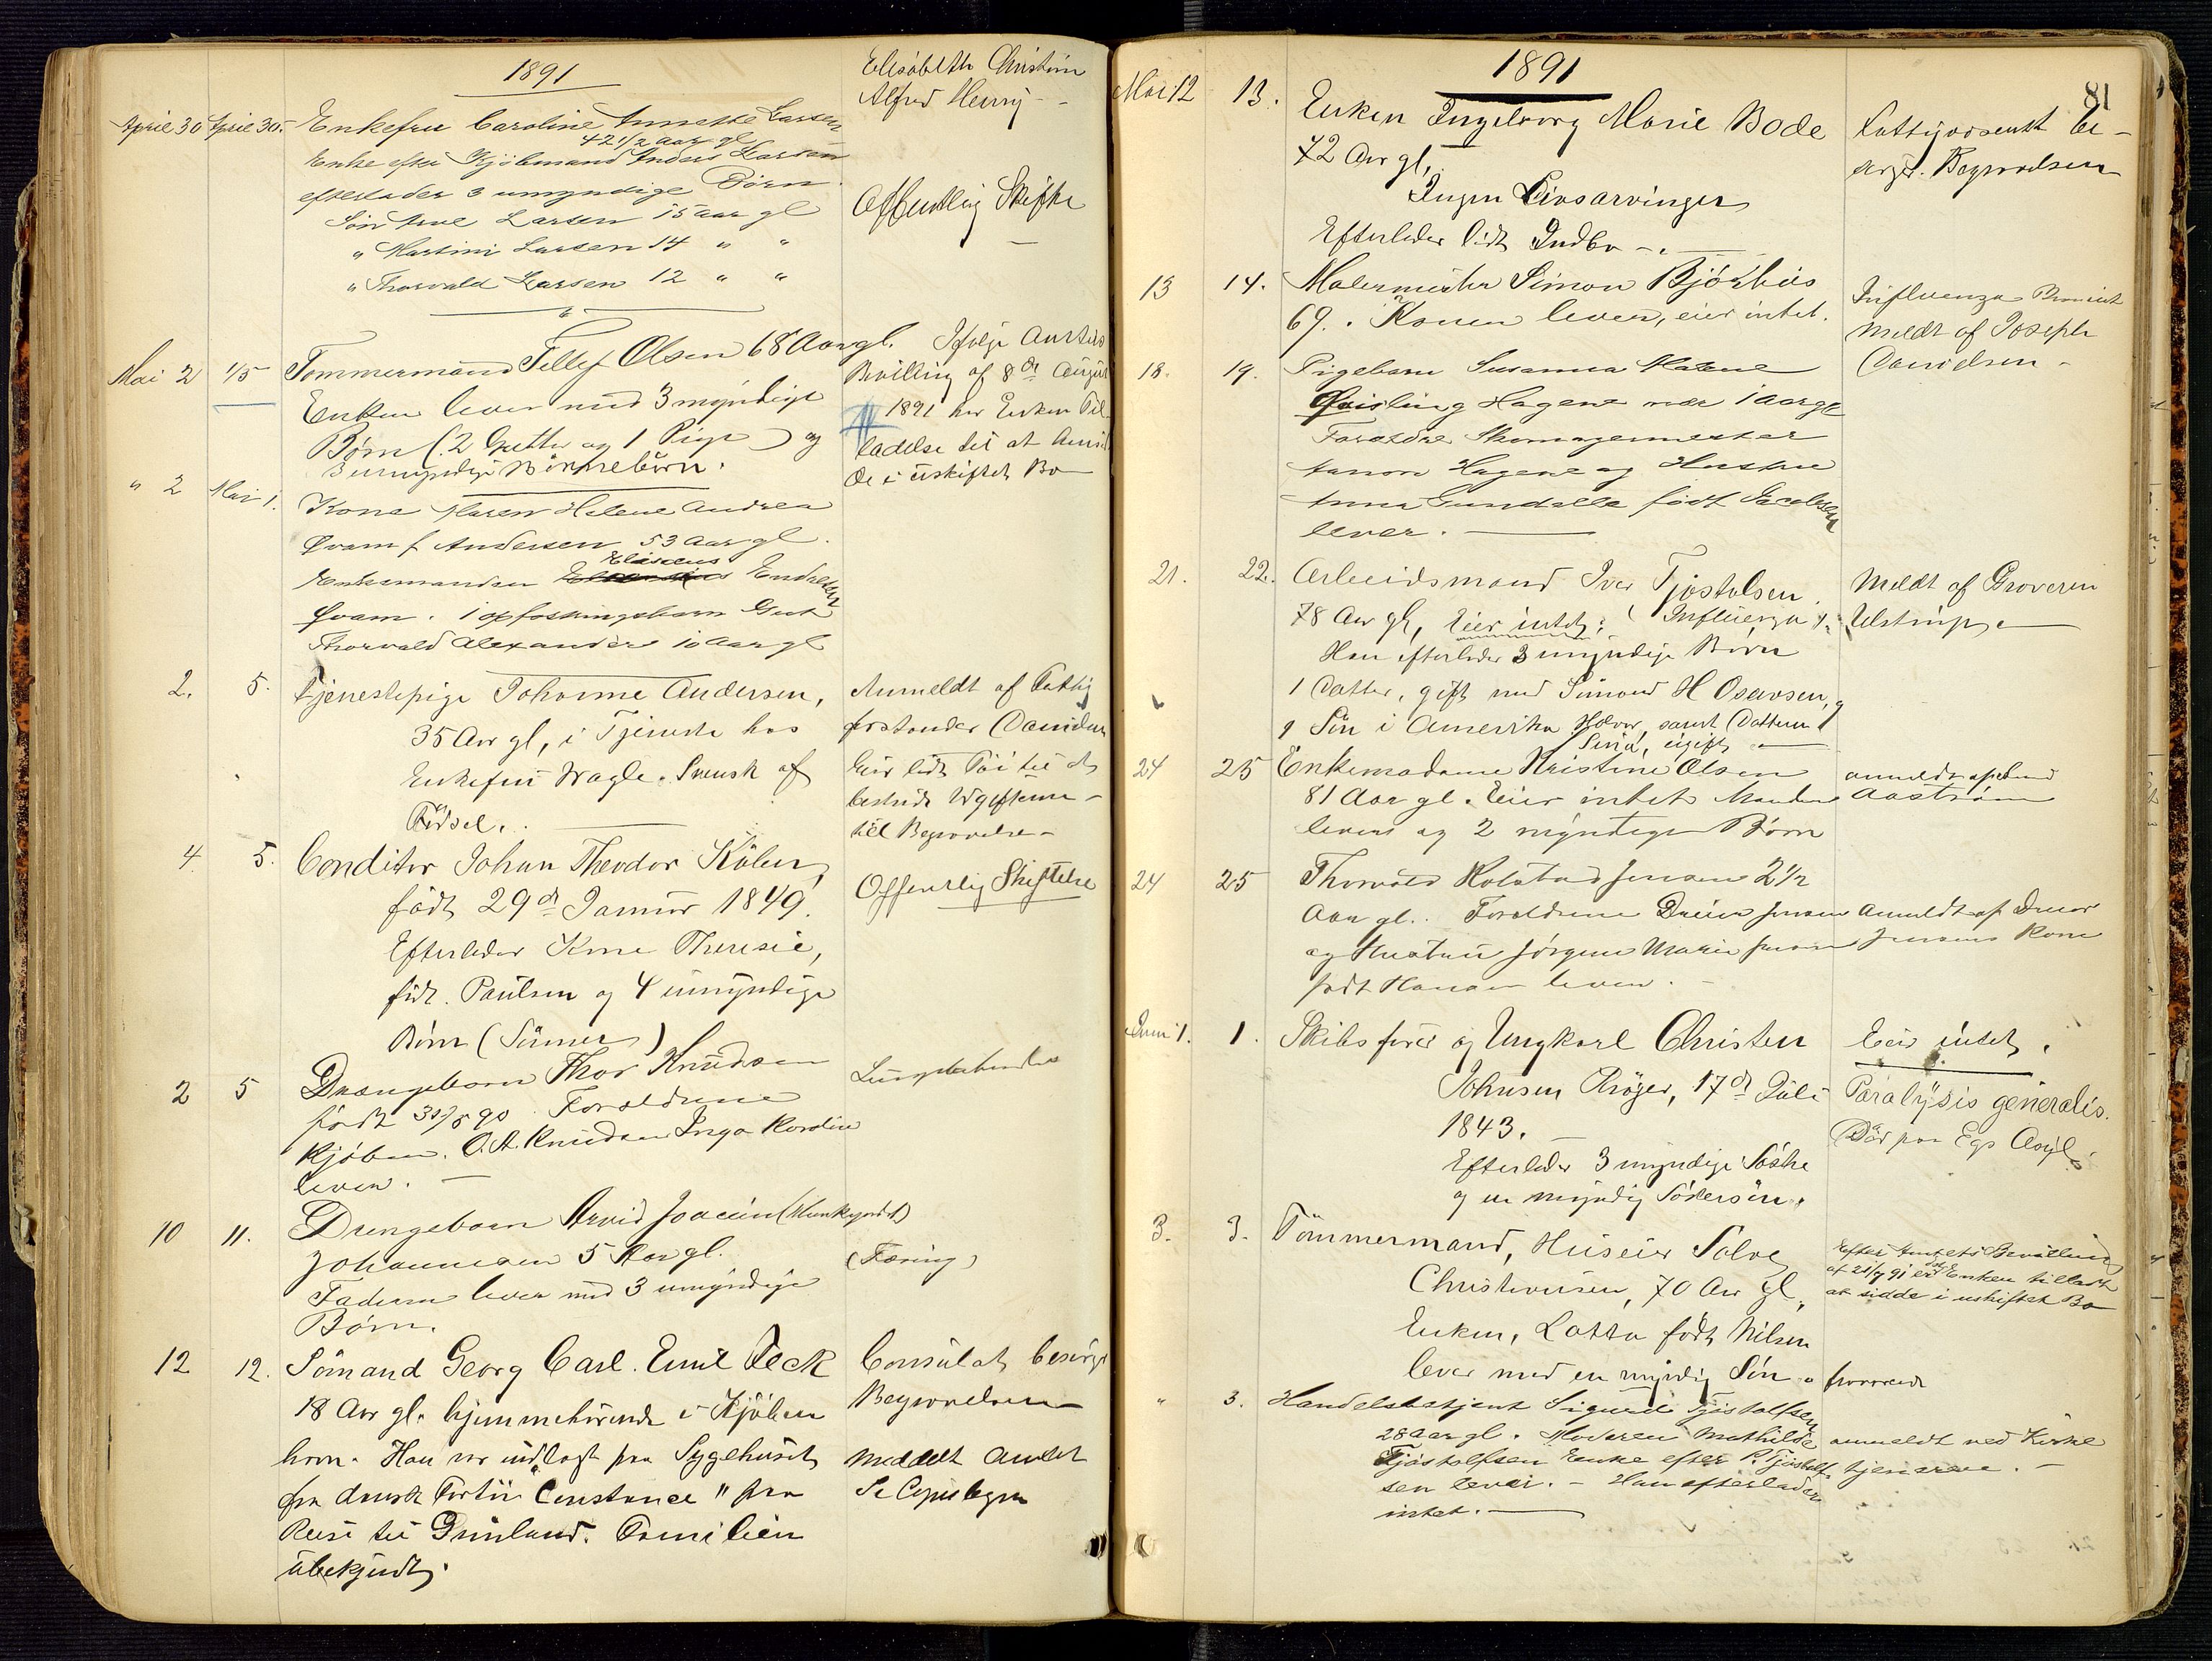 1891
Elisabeth Christine
Alfred Henry - -
April 30 April 30. Enkefru Caroline Annette Larsen
42 1/2 Aar gl
Enke efter Kjøbmand Anders Larsen
efterlader 3 umyndige Børn.
Søn Arne Larsen 15 aar gl
" Martini Larsen 14 " "
" Thorvald Larsen 12 " "
Offentlig Skifte
Mai 2 1/5 Tømmermand Tellef Olsen 68 Aar gl.
Enken lever med 3 myndige
Børn (2 Gutter og 1 Pige) og
3 umyndige Børnebørn.
Ifølge Amtets
Bevilling af 8de August
1891 har Enken Til
ladelse til at
de i uskiftet Bo
" 2 Mai 1. Kone Maren Helene Andrea
Qvam f. Andersen 53 Aar gl.
Elisæus
Enkemanden Endresen
Qvam. 1 opfostringsbarn Gut
Thorvald Alexander 10 Aar gl
2. 5. Tjenestepige Johanne Andersen,
35 Aar gl, i Tjeneste hos
Enkefru Wagle. Svensk af
Fødsel.
Anmeldt af Fattig
forstander Danielsen
Eier lidt Tøi til at
bestride Udgifterne -
til Begravelse -
4. 5. Conditor Johan Theodor Köler,
født 29de Januar 1849.
Efterlader Kone Theresie,
født Paulsen og 4 umyndige
Børn (Sønner)
Offentlig Skiftelse
2 5 Drengebarn Thor Knudsen
født 30/8 90. Forældrene
Kjøbm. O. A. Knudsen Inga Karoline
lever. -
Lungebetændelse
10 11. Drengebarn Arvid Joacim (Munkejord)
Johannesen 5 Aar gl.
Faderen lever med 3 umyndige
Børn.
(Tæring)
12 12. Sømand Georg Carl Emil Feck
18 Aar gl. hjemmehørende i Kjøben
havn. Han var indlagt paa Sygehuset
fra dansk Fartøi "Constance" paa
Reise til Grønland. Familien
ubekjendt.
Consulat besørger
Begravelsen
Meddelt Amtet
Se Copiebogen
1891
81
Mai 12 13. Enken Ingeborg Marie Bode
72 Aar gl,
Ingen Livsarvinger
Efterlader lidt Indbo -.
Fattigvæsenet be-
sørger Begravelsen
13 14. Malermester Simon Bjørhus
69. Konen lever, eier intet.
Influenza
Meldt af Joseph
Danielsen -
18. 19. Pigebarn Susanna Malene
Qvisling Hagene nær 1 aar gl
Forældre Skomagermester
Hagene og Hustru
Anna Gundelle født Jacobsen
lever.
21. 22. Arbeidsmand Iver Tjøstolsen
78 Aar gl, Eier intet; (Influenza)
Han efterlader 3 myndige Børn
1 Datter, gift med Simond H Osevosen,
1 Søn i Amerika Halvor, samt Datteren
Siria, ugift
Meldt af Graveren
Ulstrup
24 25 Enkemadame Kristine Olsen
81 Aar gl. Eier intet Manden
levens og 2 myndige Børn
anmeldt af
Aastrøm
24 25 Thorvald Holstad Jensen 2 1/2
Aar gl. Forældrene Dreier Jensen
og Hustru Jørgine Marie Jensen
født Hansen lever.
Anmeldt af Dreier
Jensens Kone
Juni 1. 1. Skibsfører og Ungkarl Christen
Johnsen Krøger, 17de Juli
1843.
Efterlader 3 myndige Søstre
og en myndig Søstersøn.
Eier intet.
Paralysis generalis.
Død paa Egs Asyl.
3. 3. Tømmermand, Huseier Salve
Christensen, 70 Aar gl.
Enken, Lotta født Nilsen
lever med en myndig Søn
Efter Amtets Bevilling
af 21/7 91 er Enken tilladt
at sidde i uskiftet Bo
" 3. Handelsbetjent Sigurd Tjøstolfsen
28 Aar gl. Moderen Mathilde
Tjøstolfsen Enke efter P. Tjøstolf-
sen lever. - Han efterlader
intet.
anmeldt ved Kirke
tjeneren. -